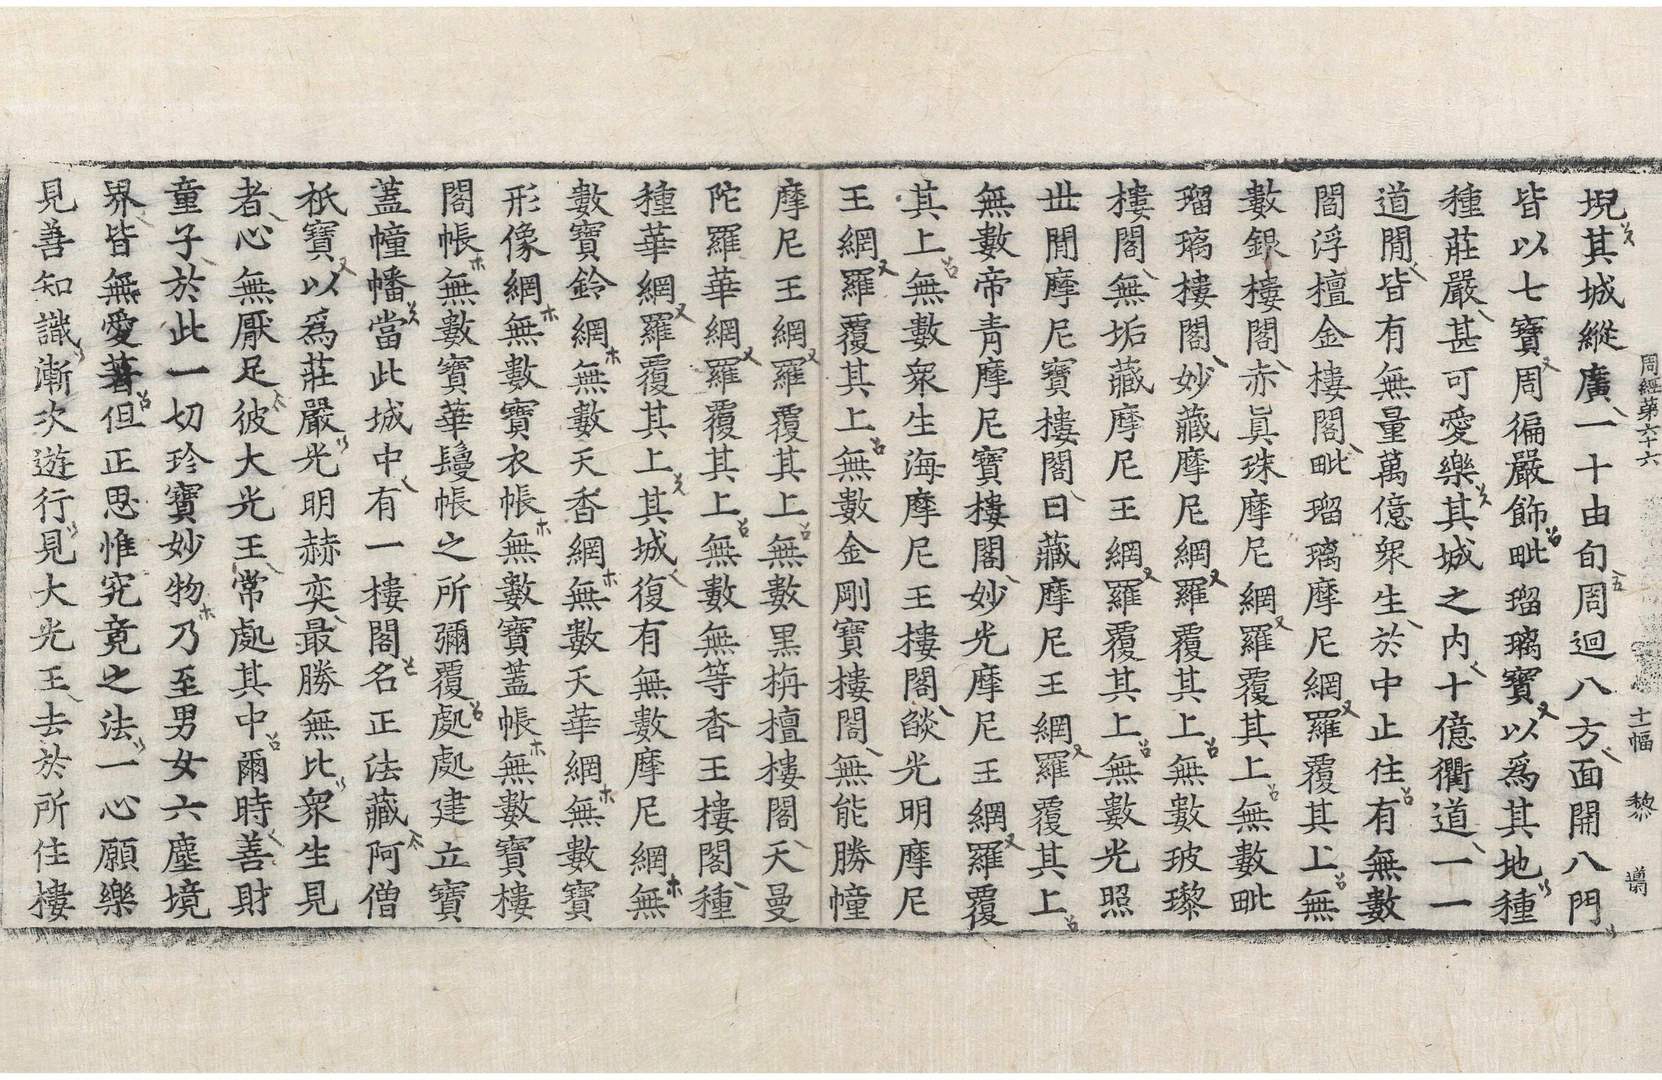 周經第六十六 十二幅 黎
堄其城縱廣一十由旬周迴八方面開八門
皆以七寶周徧嚴飾毗瑠璃寶以爲其地種
種莊嚴甚可愛樂其城之內十億衢道一一
道間皆有無量萬億衆生於中止住有無數
閻浮檀金樓閣毗瑠璃摩尼網羅覆其上無
數銀樓閣赤眞珠摩尼網羅覆其上無數毗
瑠璃樓閣妙藏摩尼網羅覆其上無數玻瓈
樓閣無垢藏摩尼王網羅覆其上無數光照
世間摩尼寶樓閣日藏摩尼王網羅覆其上
無數帝青摩尼寶樓閣妙光摩尼王網羅覆
其上無數衆生海摩尼王樓閣燄光明摩尼
王網羅覆其上無數金剛寶樓閣無能勝幢
摩尼王網羅覆其上無數黑栴檀樓閣天曼
陀羅華網羅覆其上無數無等香王樓閣種
種華網羅覆其上其城復有無數摩尼網無
數寶鈴網無數天香網無數天華網無數寶
形像網無數寶衣帳無數寶蓋帳無數寶樓
閣帳無數寶華鬘帳之所彌覆處處建立寶
蓋幢幡當此城中有一樓閣名正法藏阿僧
祇寶以爲莊嚴光明赫奕最勝無比衆生見
者心無厭足彼大光王常處其中爾時善財
童子於此一切珍寶妙物乃至男女六塵境
界皆無愛著但正思惟究竟之法一心願樂
見善知識漸次遊行見大光王去於所住樓